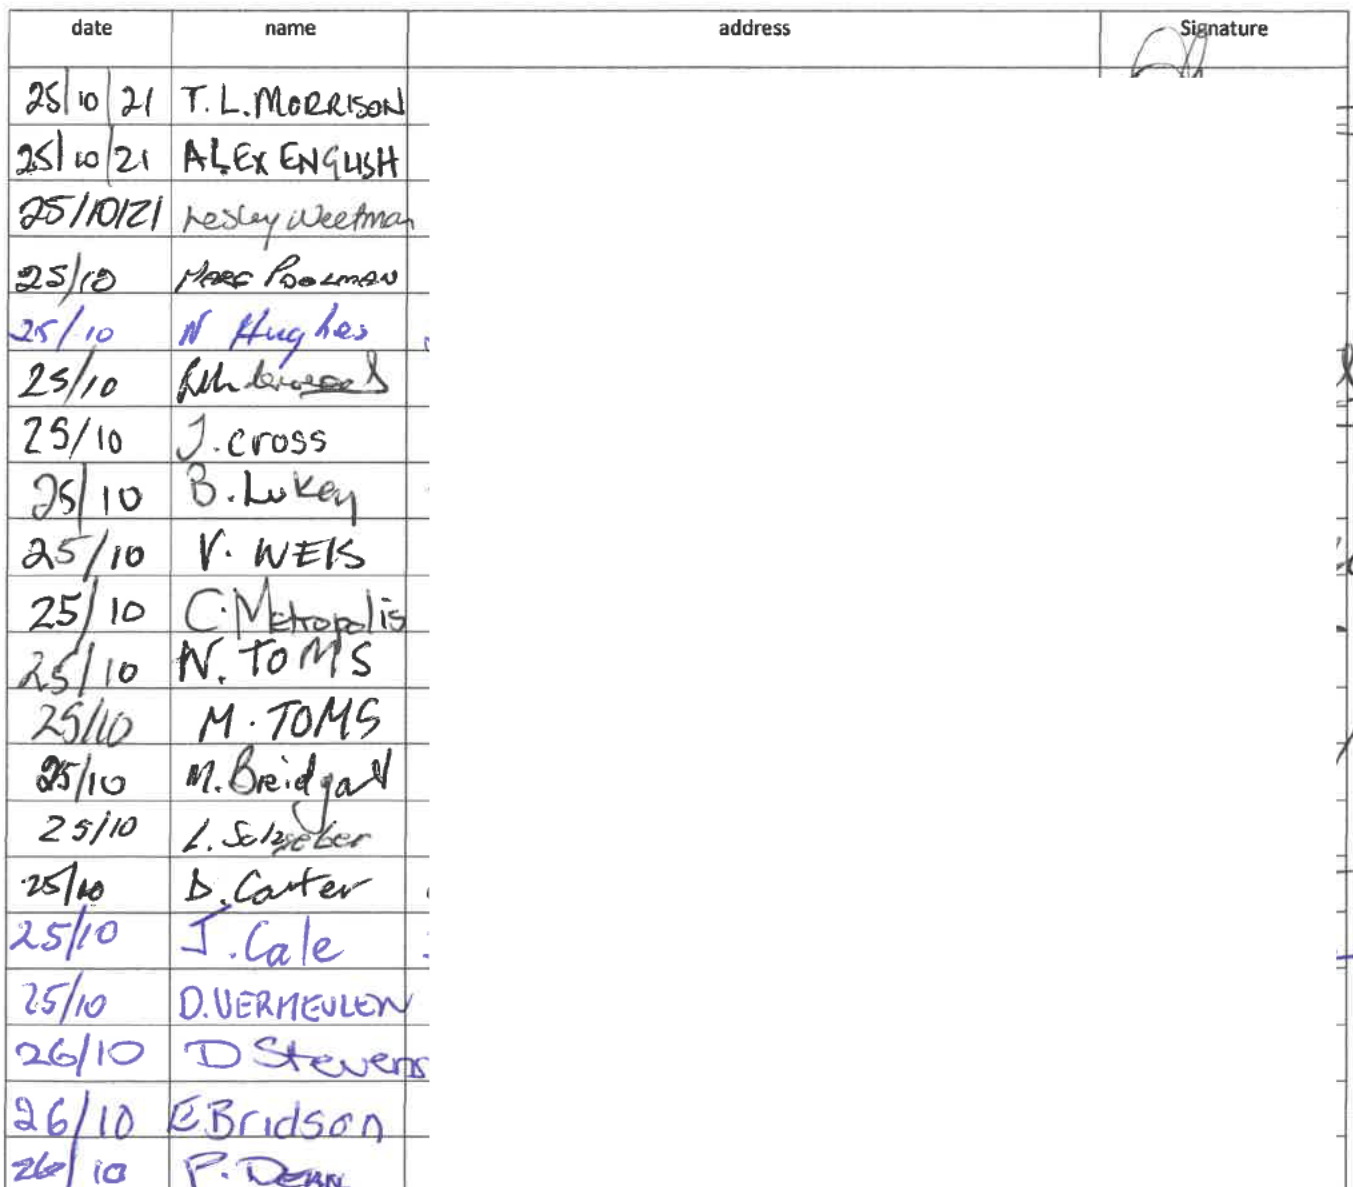 date name address Signature
25/10/21 T.L. MORRISON
25/10/21 ALEX ENGLISH
25/10/21 Lesley Weetman
25/10 MARC POOLMAN
25/10 N Hughes
25/10
25/10 J. Cross
25/10 B. Lukey
25/10 V. WEIS
25/10 C. Metropolis
25/10 N. TOMS
25/10 M. TOMS
25/10 M. Breidgard
25/10 L.
25/10 D. Carter
25/10 J. Cale
25/10 D. VERMEULEN
26/10 D Stevens
26/10 E Bridson
26/10 P. DEAN